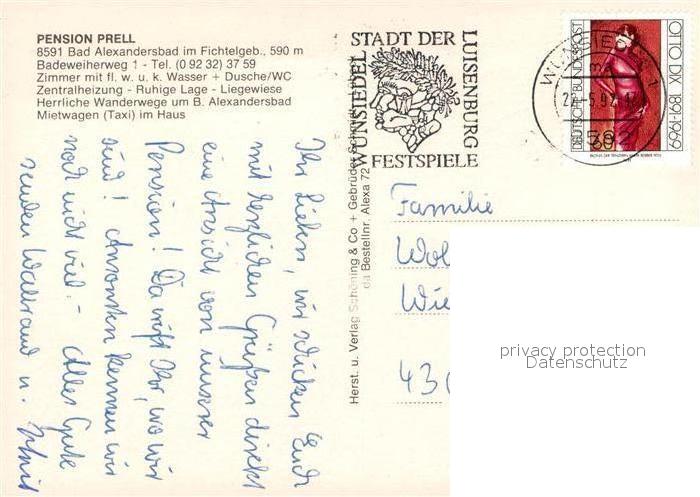 PENSION PRELL
8591 Bad Alexandersbad im Fichtelgeb., 590 m
Badeweiherweg 1 - Tel. (0 92 32) 37 59
Zimmer mit fl. w. u. k. Wasser + Dusche/WC
Zentralheizung - Ruhige Lage - Liegewiese
Herrliche Wanderwege um B. Alexandersbad
Mietwagen (Taxi) im Haus
Ihr Lieben, wir schicken Euch
mit herzlichen Grüßen direkt
eine Ansicht von unserer
Pension! Da wißt Ihr, wo wir
sind! Ansonsten kennen wir
noch nicht viel. - Alles Gute
senden Waltraud u.
Herst. u. Verlag Schöning & Co + Gebrüder Schmidt
Bestellnr. Alexa 72
STADT DER
LUISENBURG
FESTSPIELE
WUNSIEDEL
WUNSIEDEL 1
OTTO DIX 1891-1969
DEUTSCHE BUNDESPOST
60
Familie
Wol
Wie
430
privacy protection
Datenschutz